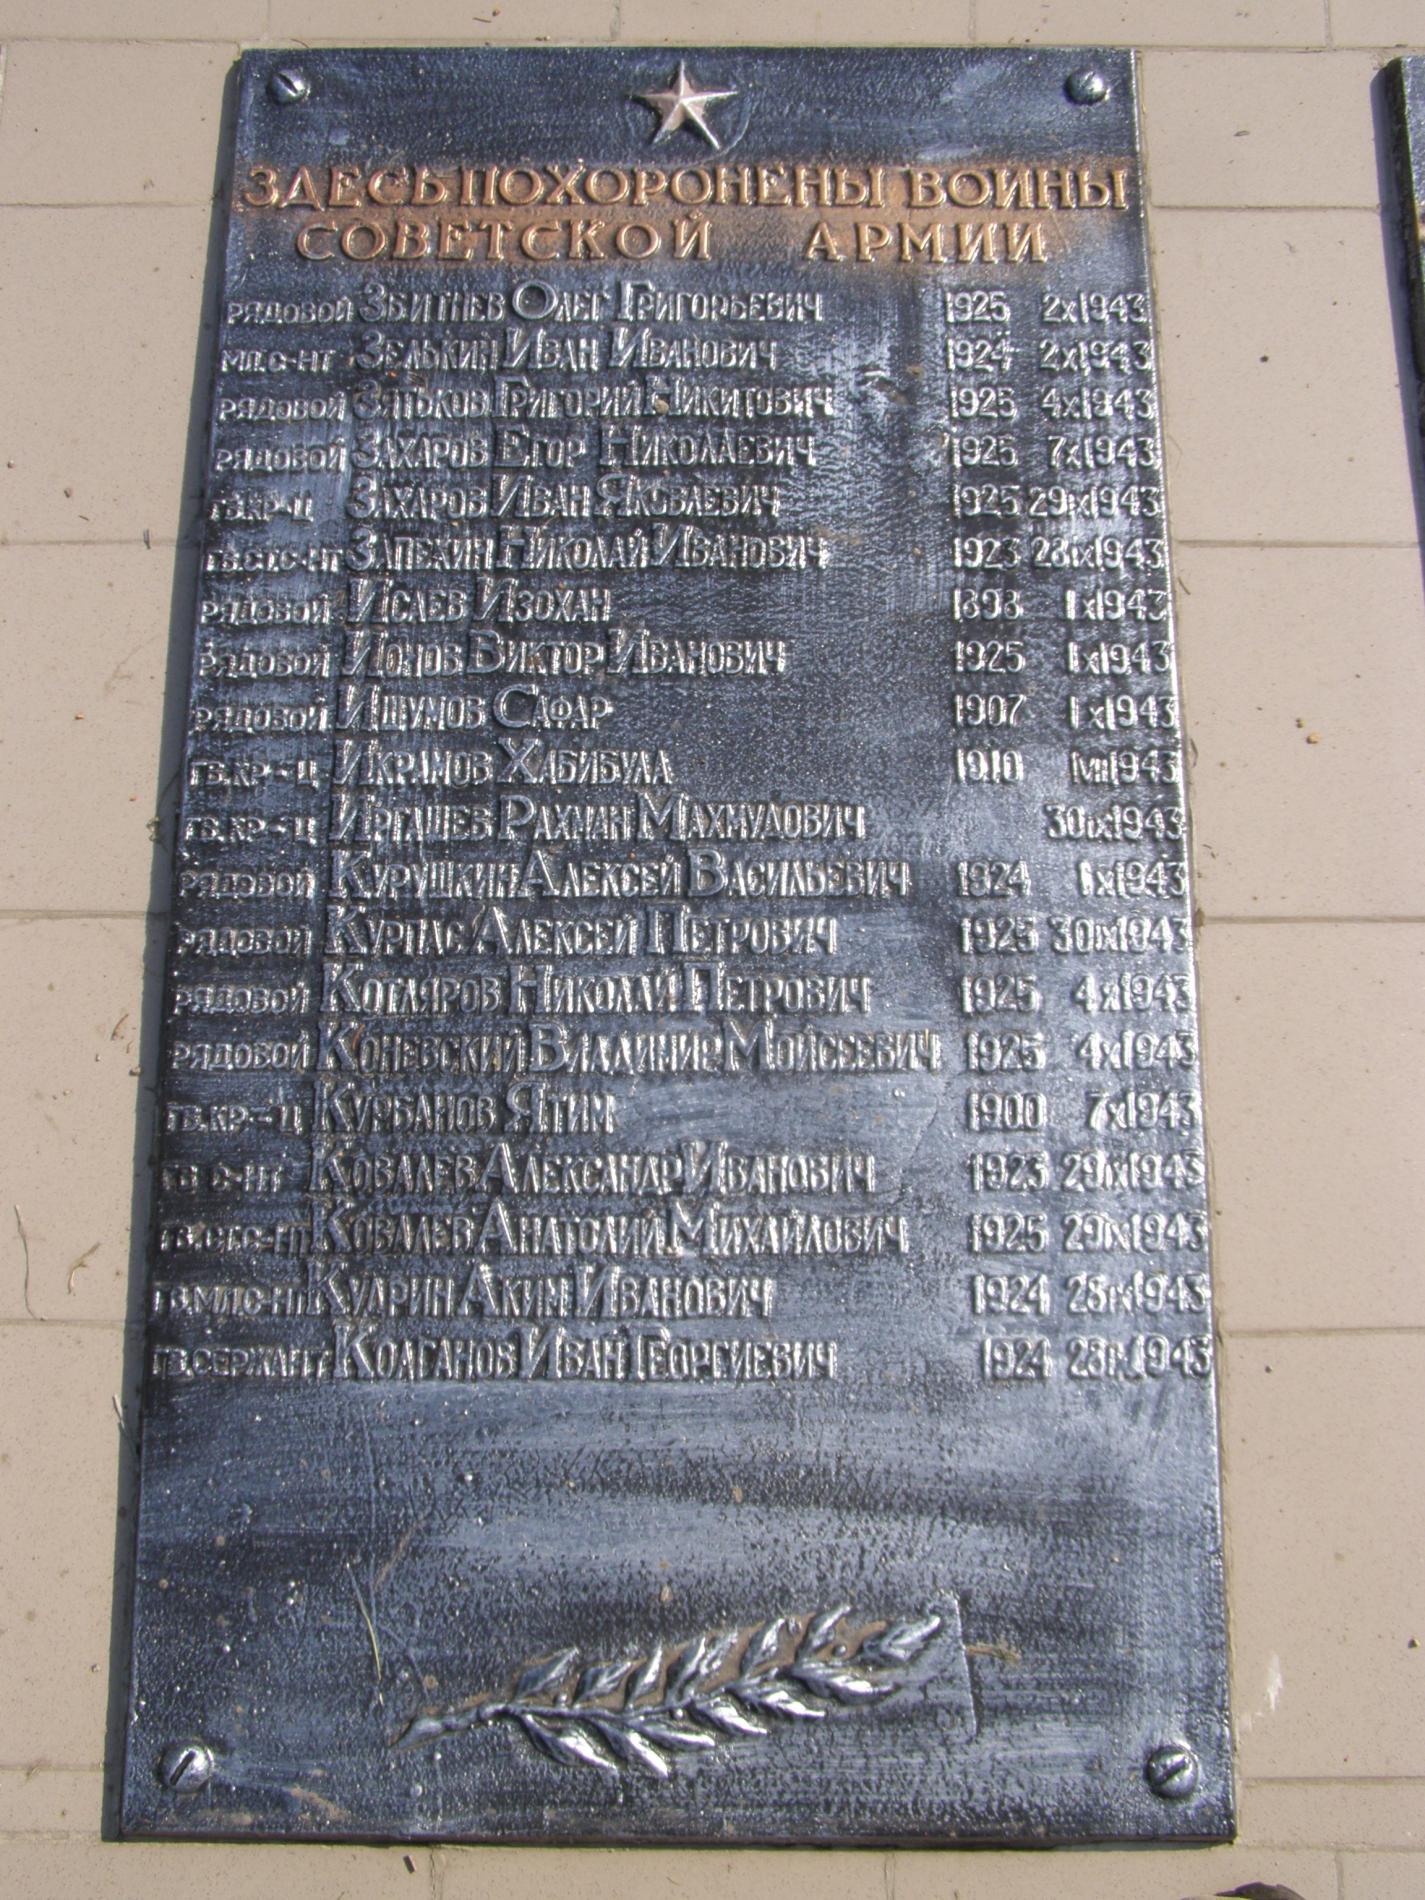 ЗДЕСЬ ПОХОРОНЕНЫ ВОИНЫ
СОВЕТСКОЙ АРМИИ
РЯДОВОЙ ЗБИТНЕВ ОЛЕГ ГРИГОРЬЕВИЧ 1925 2X1943
МЛ.С-НТ ЗЕЛЬКИН ИВАН ИВАНОВИЧ 1924 2X1943
РЯДОВОЙ ЗЯТЬКОВ ГРИГОРИЙ НИКИТОВИЧ 1925 4X1943
РЯДОВОЙ ЗАХАРОВ ЕГОР НИКОЛАЕВИЧ 1925 7X1943
ГВ.КР-Ц ЗАХАРОВ ИВАН ЯКОВЛЕВИЧ 1925 29IX1943
ГВ.СТ.С-НТ ЗАПЕХИН НИКОЛАЙ ИВАНОВИЧ 1923 28IX1943
РЯДОВОЙ ИСАЕВ ИЗОХАН 1898 1X1943
РЯДОВОЙ ИОНОВ ВИКТОР ИВАНОВИЧ 1925 1X1943
РЯДОВОЙ ИШУМОВ САФАР 1907 1X1943
ГВ.КР-Ц ИКРАМОВ ХАБИБУЛА 1910 1943
ГВ.КР-Ц ИРГАШЕВ РАХМАН МАХМУДОВИЧ 30IX1943
РЯДОВОЙ КУРУШКИН АЛЕКСЕЙ ВАСИЛЬЕВИЧ 1924 1X1943
РЯДОВОЙ КУРПАС АЛЕКСЕЙ ПЕТРОВИЧ 1925 30IX1943
РЯДОВОЙ КОТЛЯРОВ НИКОЛАЙ ПЕТРОВИЧ 1925 4X1943
РЯДОВОЙ КОНЕВСКИЙ ВЛАДИМИР МОЙСЕЕВИЧ 1925 4X1943
ГВ.КР-Ц КУРБАНОВ ЯТИМ 1900 7X1943
ГВ С-НТ КОВАЛЕВ АЛЕКСАНДР ИВАНОВИЧ 1923 29IX1943
ГВ.СТ.С-НТ КОВАЛЕВ АНАТОЛИЙ МИХАЙЛОВИЧ 1925 29IX1943
ГВ.МЛ.С-НТ КУДРИН АКИМ ИВАНОВИЧ 1924 28IX1943
ГВ.СЕРЖАНТ КОЛГАНОВ ИВАН ГЕОРГИЕВИЧ 1924 28IX1943